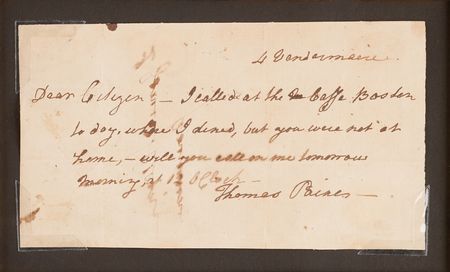 4 Vendemiaire.
Dear Citizen — I called at the Caffe Boston
to day, where I dined, but you were not at
home, — will you call on me tomorrow
morning at 12 OClock —
Thomas Paine —